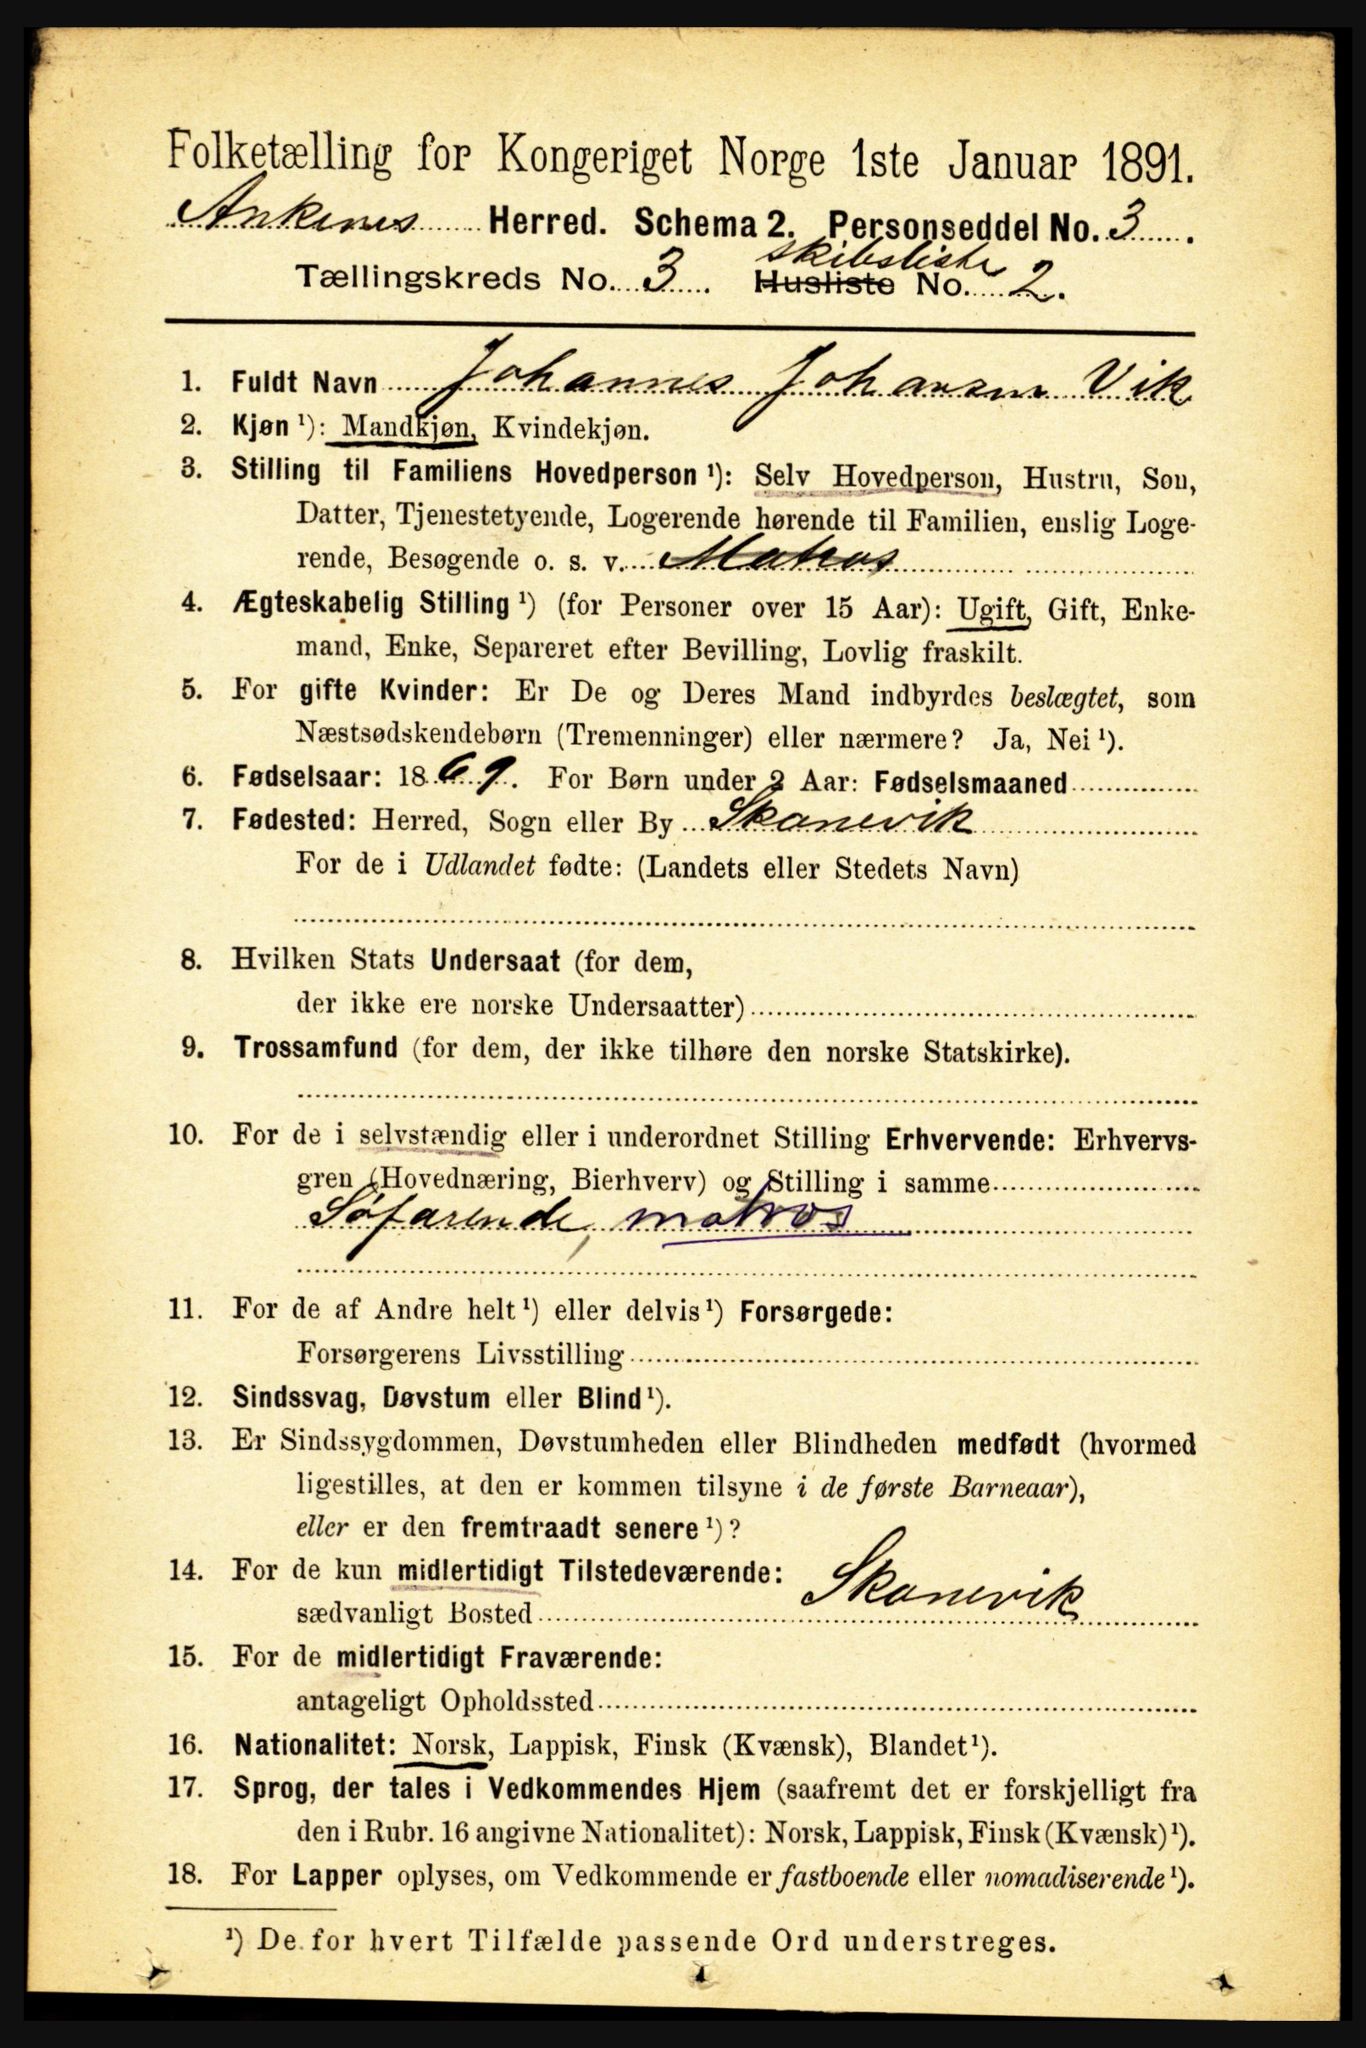 Folketælling for Kongeriget Norge 1ste Januar 1891.
Ankenes Herred. Schema 2. Personseddel No. 3.
Skibsliste
Tællingskreds No. 3. Husliste No. 2.
1. Fuldt Navn Johannes Johansen Vik
2. Kjøn ¹): Mandkjøn, Kvindekjøn.
3. Stilling til Familiens Hovedperson ¹): Selv Hovedperson, Hustru, Søn,
Datter, Tjenestetyende, Logerende hørende til Familien, enslig Loge-
rende, Besøgende o. s. v. Matros
4. Ægteskabelig Stilling ¹) (for Personer over 15 Aar): Ugift, Gift, Enke-
mand, Enke, Separeret efter Bevilling, Lovlig fraskilt.
5. For gifte Kvinder: Er De og Deres Mand indbyrdes beslægtet, som
Næstsødskendebørn (Tremenninger) eller nærmere? Ja, Nei ¹).
6. Fødselsaar: 1869. For Børn under 2 Aar: Fødselsmaaned
7. Fødested: Herred, Sogn eller By Skanevik
For de i Udlandet fødte: (Landets eller Stedets Navn)
8. Hvilken Stats Undersaat (for dem,
der ikke ere norske Undersaatter)
9. Trossamfund (for dem, der ikke tilhøre den norske Statskirke).
10. For de i selvstændig eller i underordnet Stilling Erhvervende: Erhvervs-
gren (Hovednæring, Bierhverv) og Stilling i samme
Søfarende, matros
11. For de af Andre helt ¹) eller delvis ¹) Forsørgede:
Forsørgerens Livsstilling
12. Sindssvag, Døvstum eller Blind ¹).
13. Er Sindssygdommen, Døvstumheden eller Blindheden medfødt (hvormed
ligestilles, at den er kommen tilsyne i de første Barneaar),
eller er den fremtraadt senere ¹)?
14. For de kun midlertidigt Tilstedeværende:
sædvanligt Bosted Skanevik
15. For de midlertidigt Fraværende:
antageligt Opholdssted
16. Nationalitet: Norsk, Lappisk, Finsk (Kvænsk), Blandet ¹).
17. Sprog, der tales i Vedkommendes Hjem (saafremt det er forskjelligt fra
den i Rubr. 16 angivne Nationalitet): Norsk, Lappisk, Finsk (Kvænsk) ¹).
18. For Lapper oplyses, om Vedkommende er fastboende eller nomadiserende ¹).
¹) De for hvert Tilfælde passende Ord understreges.